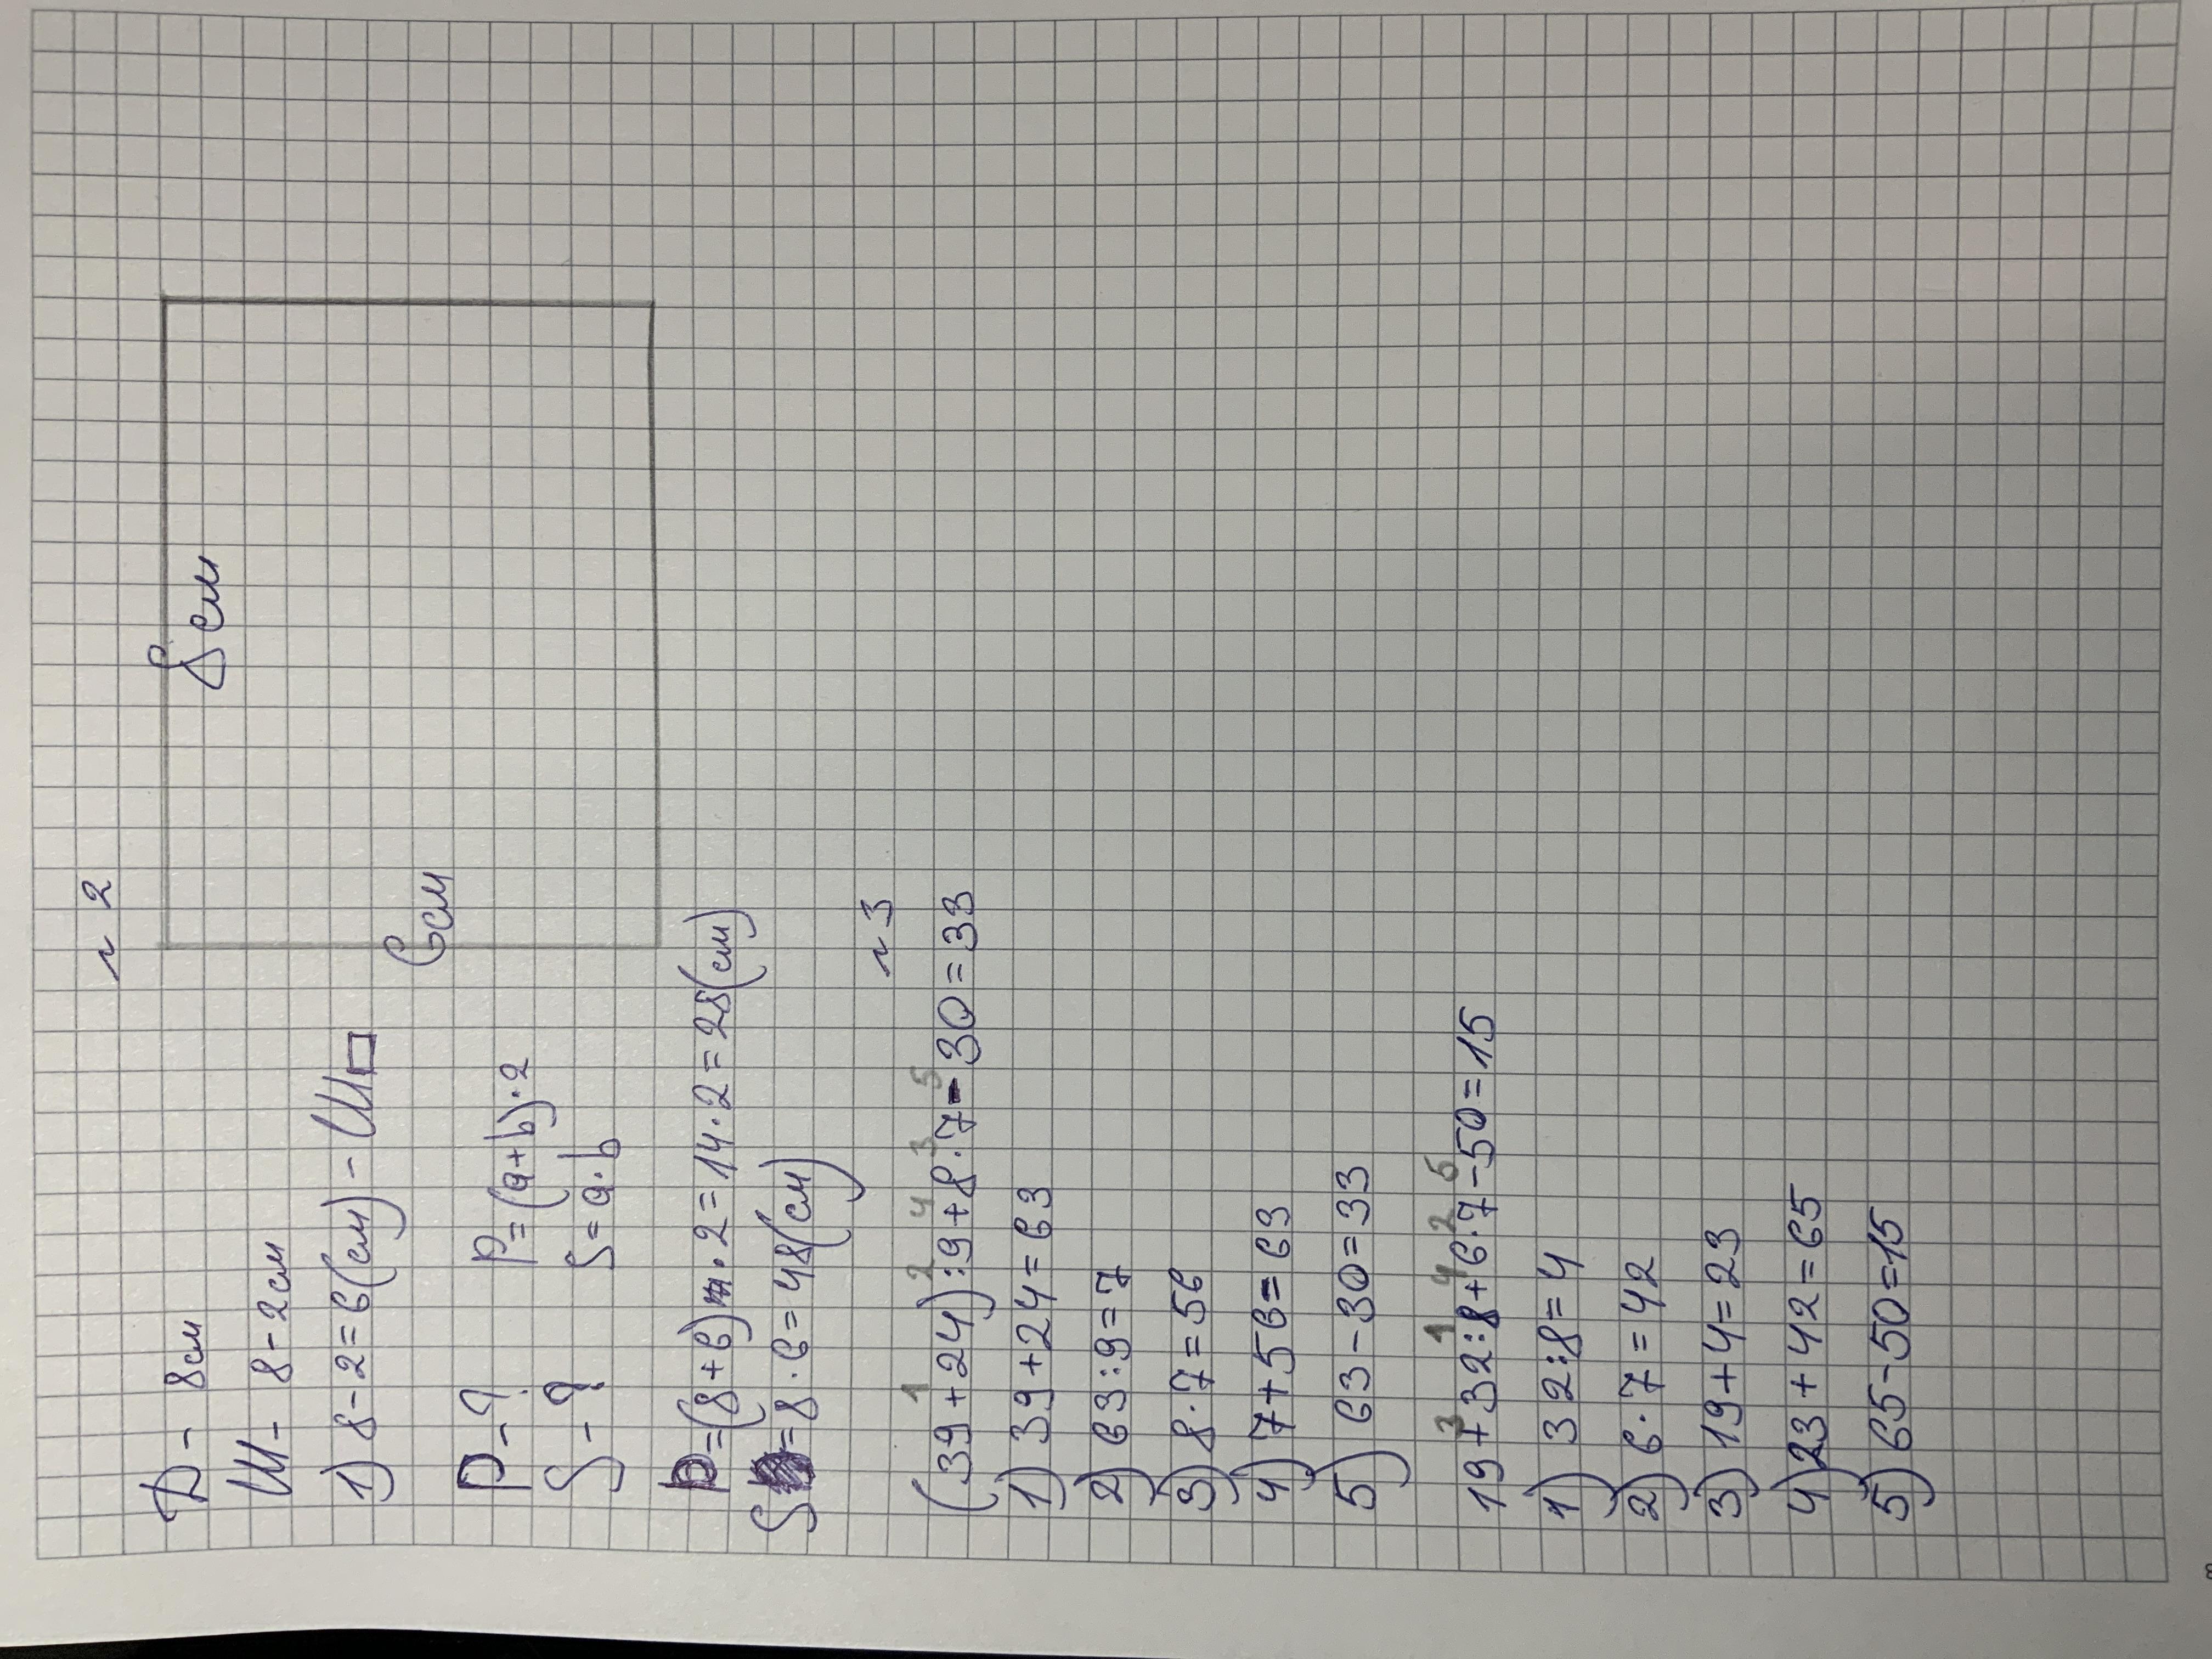 № 2
Д - 8см
8см
Ш - 8 - 2см
1) 8-2=6(см) - Ш□
6см
P - ? P=(a+b)·2
S - ? S=a·b
P=(8+6)·2=14·2=28(см)
S=8·6=48(см)
№ 3
1 2 4 3 5
(39+24):9+8·7-30=33
1) 39+24=63
2) 63:9=7
3) 8·7=56
4) 7+56=63
5) 63-30=33
3 1 4 2 5
19+32:8+6·7-50=15
1) 32:8=4
2) 6·7=42
3) 19+4=23
4) 23+42=65
5) 65-50=15